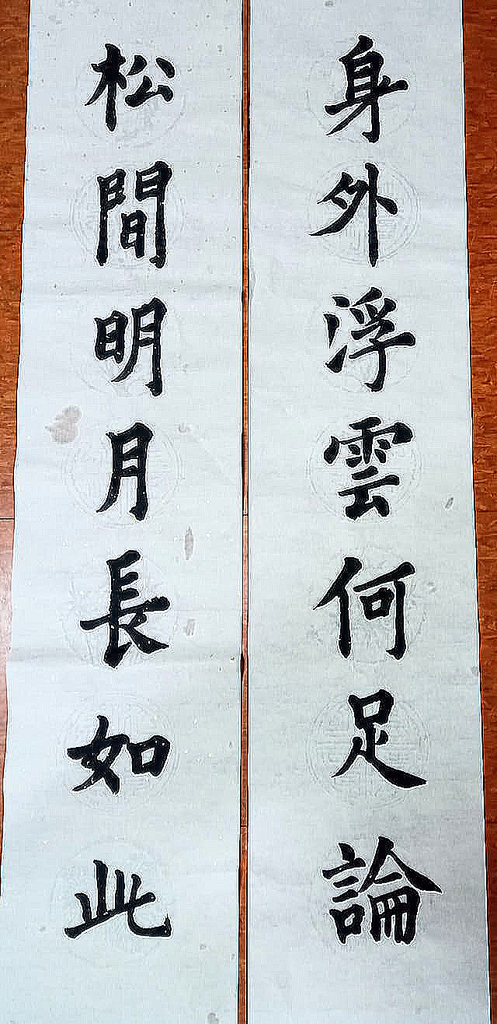 松間明月長如此
身外浮雲何足論